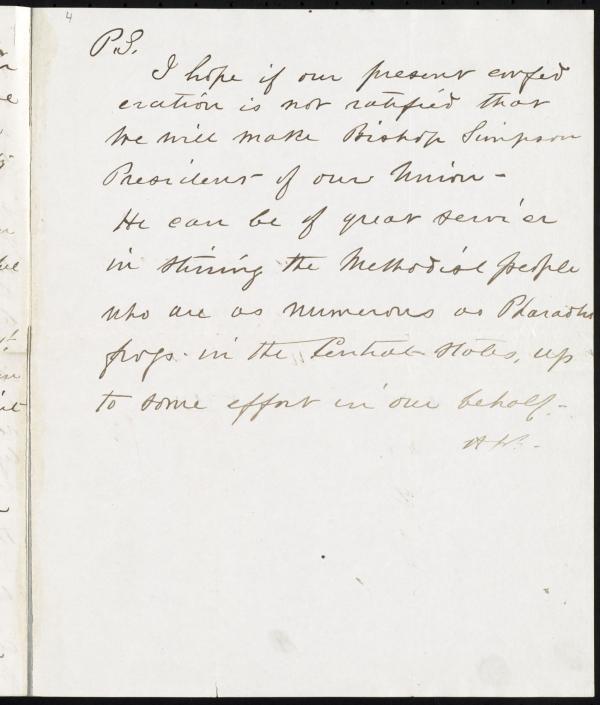 4
P.S.
I hope if our present confed
eration is not ratified that
we will make Bishop Simpson
President of our Union -
He can be of great service
in stirring the Methodist people
who are as numerous as Pharaohs
frogs. in the Central States, up
to some effort in our behalf. -